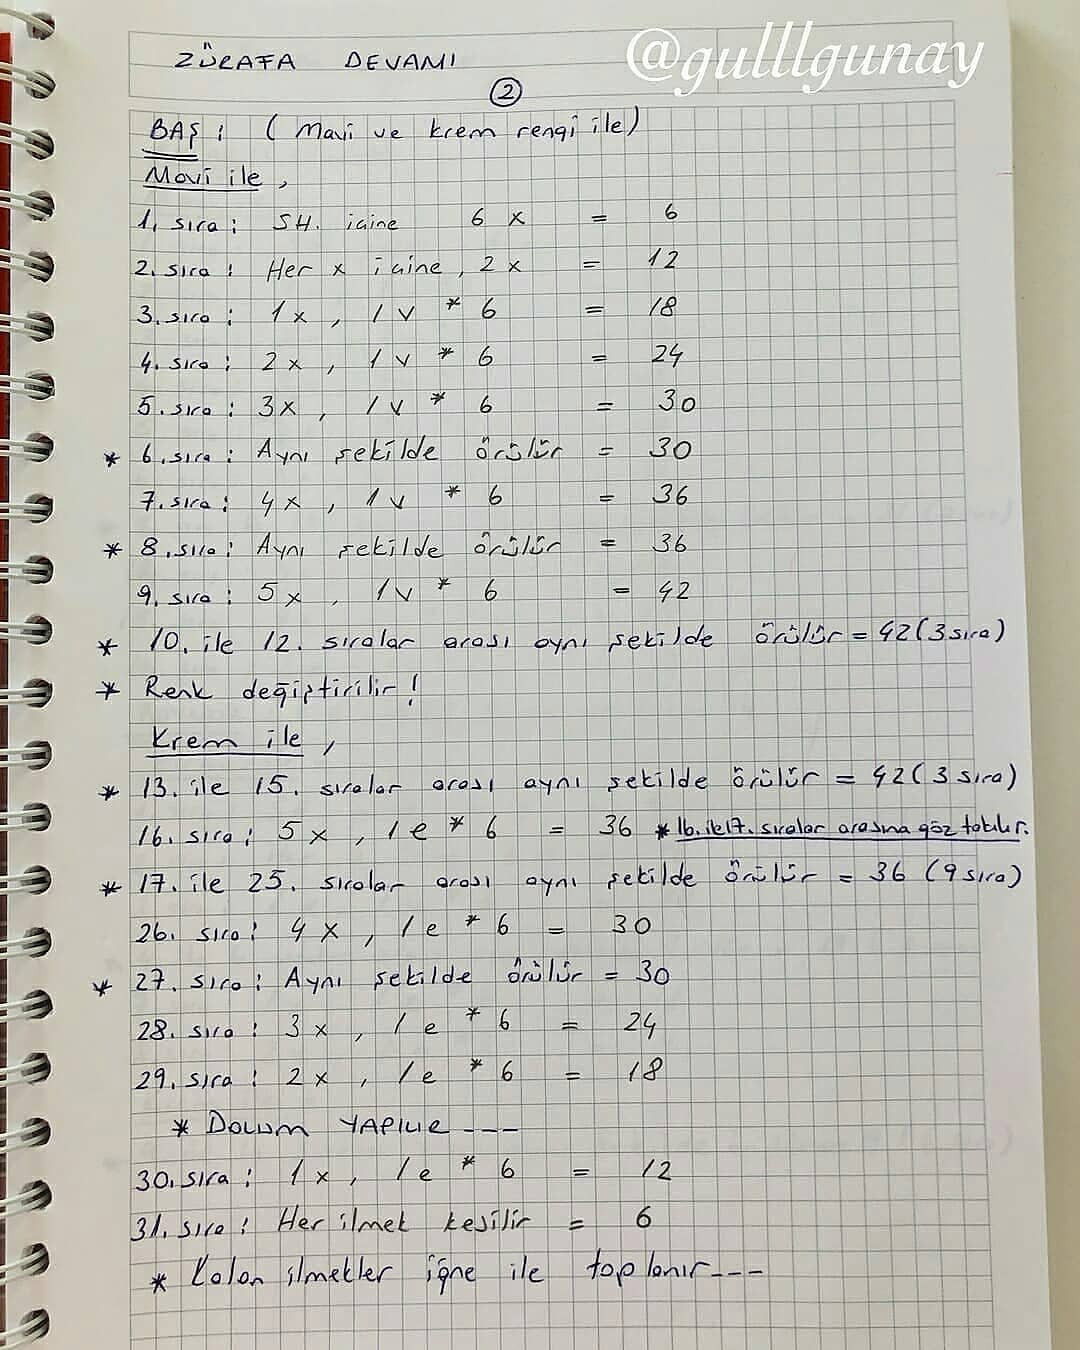 ZÜRAFA DEVAMI
@gulllgunay
2
BAŞ : ( Mavi ve krem rengi ile)
Mavi ile,
1. sıra : SH. içine 6 x = 6
2. sıra : Her x içine, 2 x = 12
3. sıra : 1 x , 1 v * 6 = 18
4. sıra : 2 x , 1 v * 6 = 24
5. sıra : 3 x , 1 v * 6 = 30
* 6. sıra : Aynı şekilde örülür = 30
7. sıra : 4 x , 1 v * 6 = 36
* 8. sıra : Aynı şekilde örülür = 36
9. sıra : 5 x , 1 v * 6 = 42
* 10. ile 12. sıralar arası aynı şekilde örülür = 42 (3 sıra)
* Renk değiştirilir !
Krem ile ,
* 13. ile 15. sıralar arası aynı şekilde örülür = 42 ( 3 sıra)
16. sıra : 5 x , 1 e * 6 = 36 * 16. ile 17. sıralar arasına göz takılır.
* 17. ile 25. sıralar arası aynı şekilde örülür = 36 (9 sıra)
26. sıra : 4 x , 1 e * 6 = 30
* 27. sıra : Aynı şekilde örülür = 30
28. sıra : 3 x , 1 e * 6 = 24
29. sıra : 2 x , 1 e * 6 = 18
* DOLUM YAPILIR ---
30. sıra : 1 x , 1 e * 6 = 12
31. sıra : Her ilmek kesilir = 6
* Kalan ilmekler iğne ile toplanır---